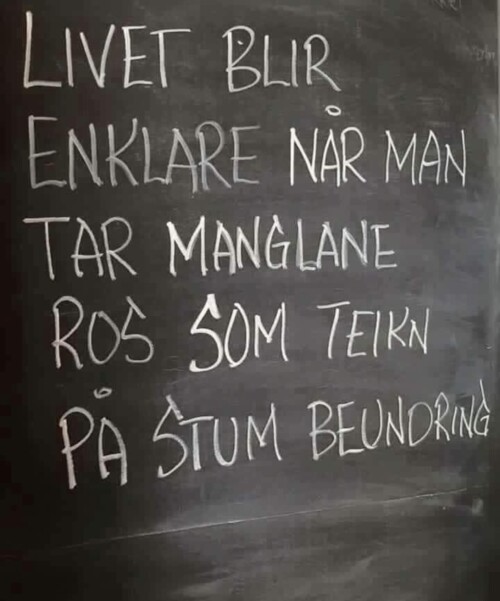 LIVET BLIR
ENKLARE NÅR MAN
TAR MANGLANE
ROS SOM TEIKN
PÅ STUM BEUNDRING